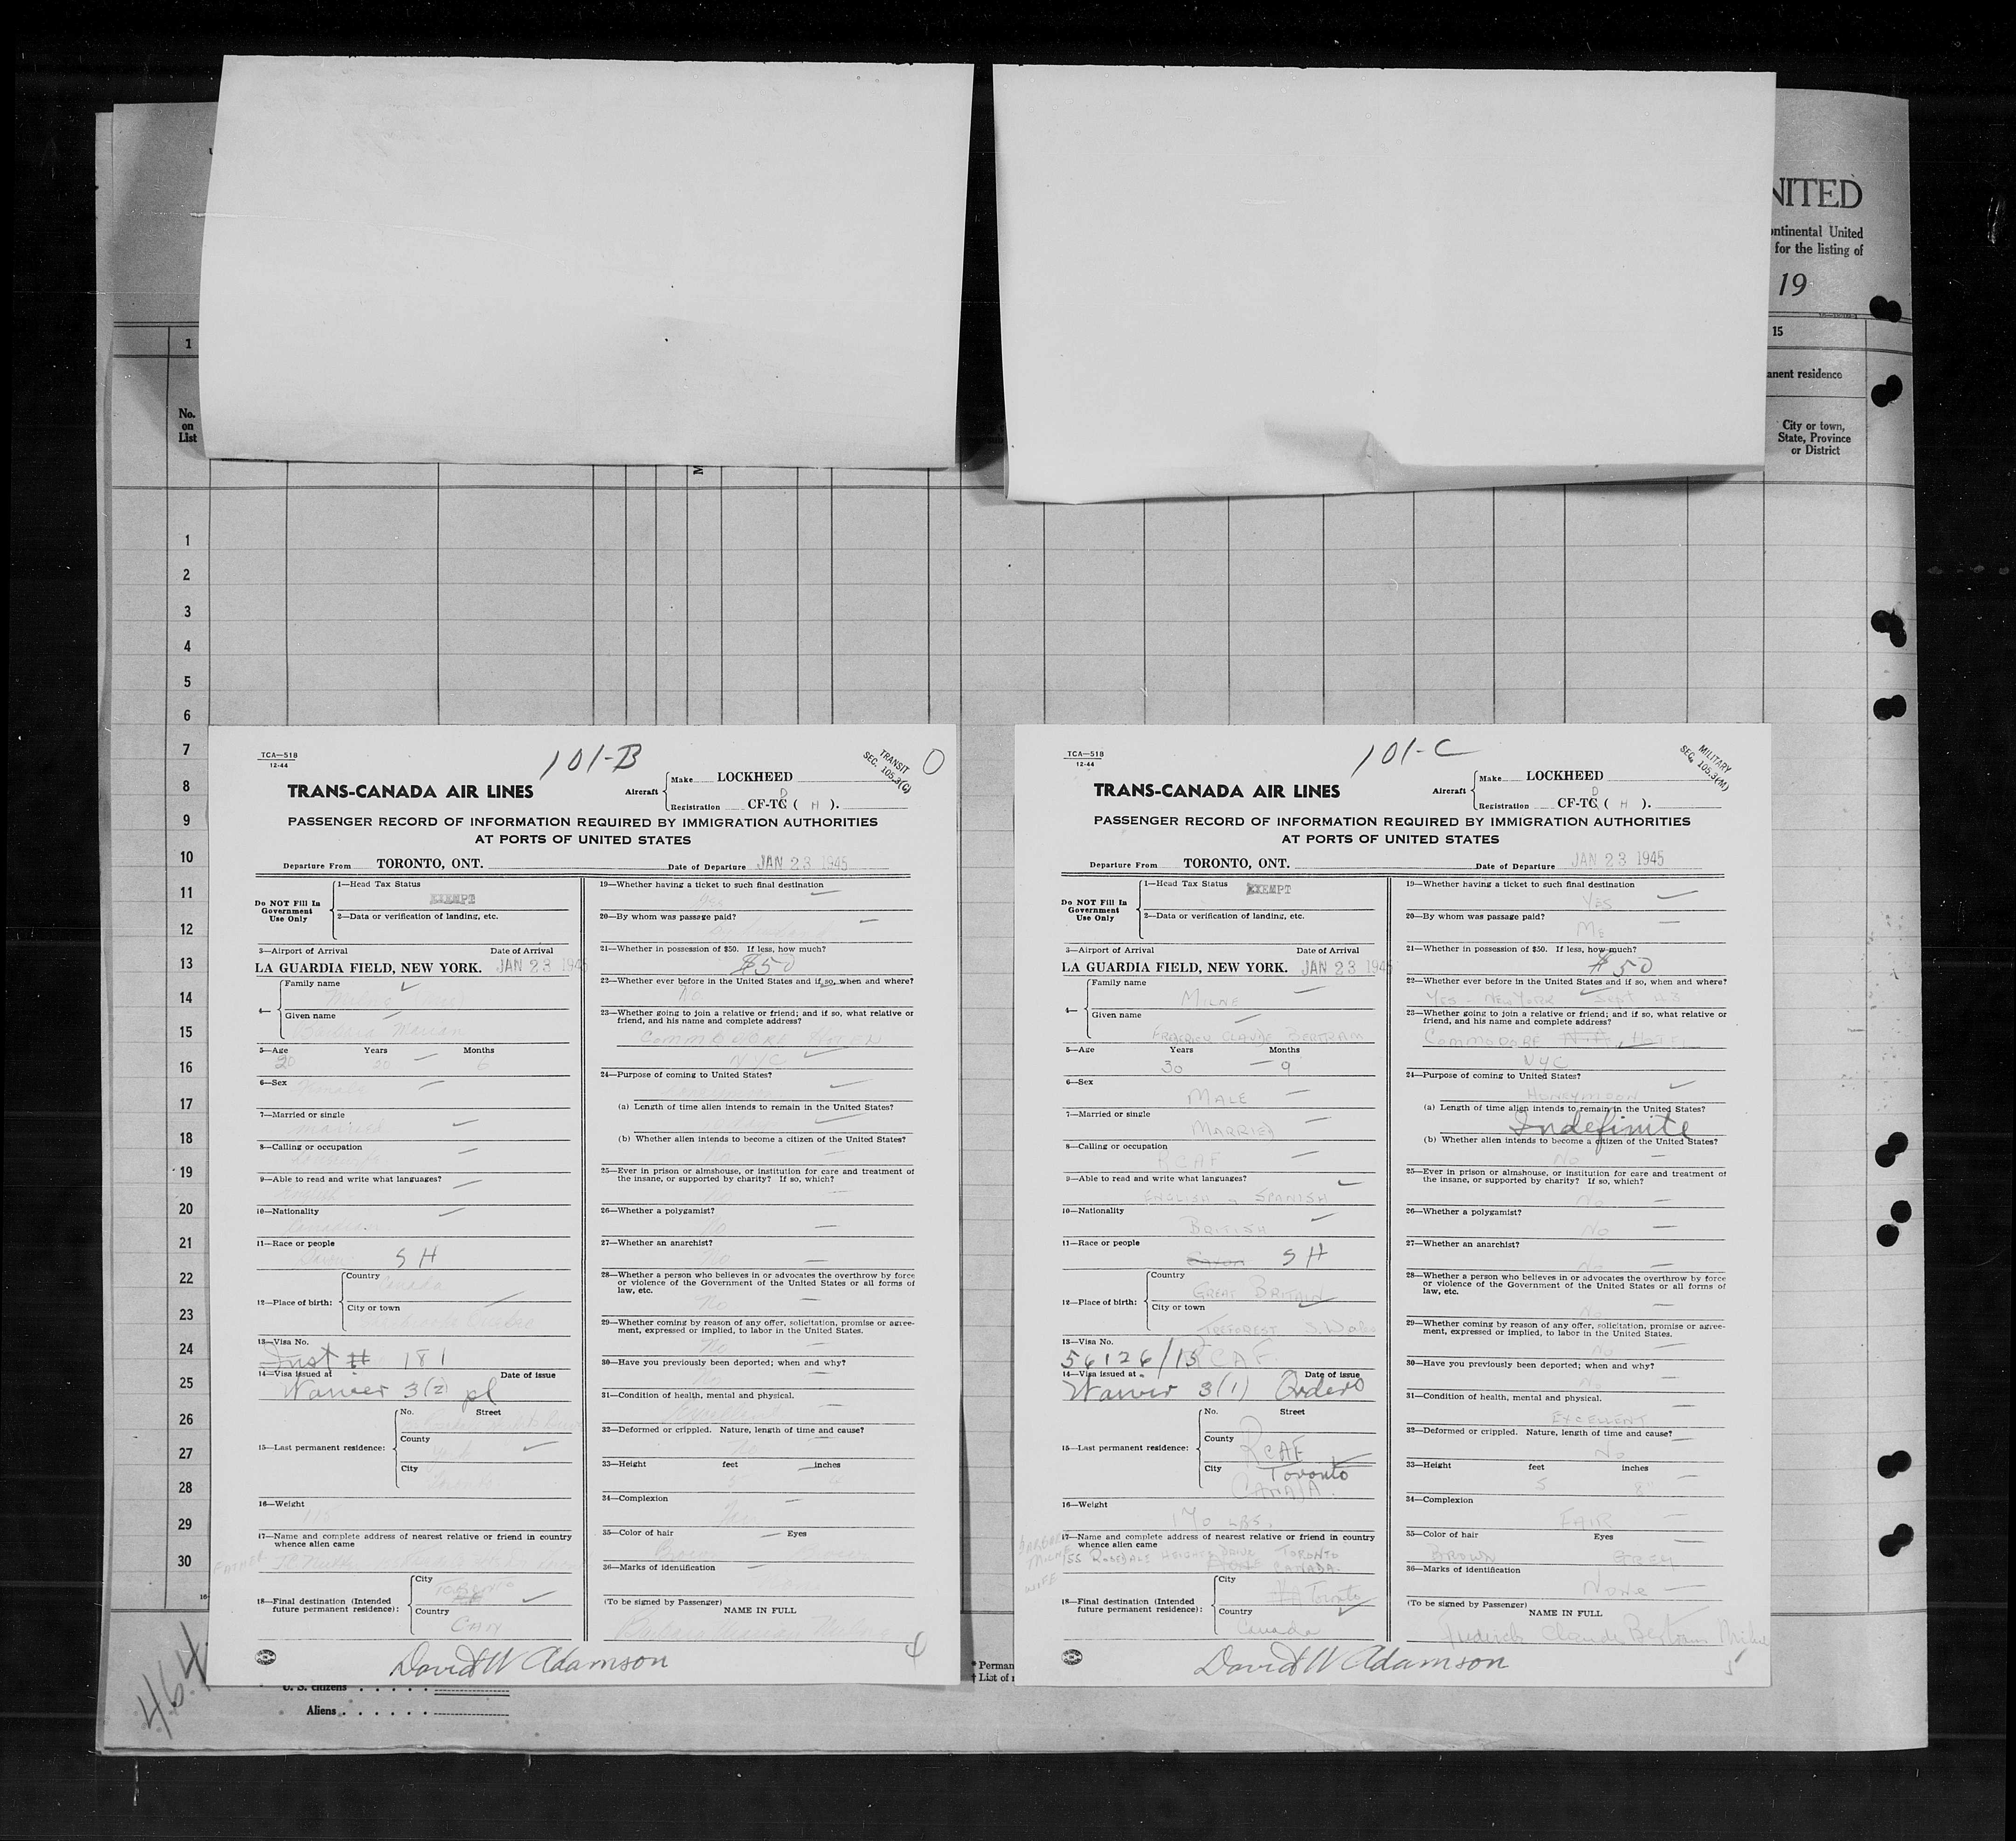 NITED
ontinental United
for the listing of
19
1
15
anent residence
No.
on
List
City or town,
State, Province
or District
M
1
2
3
4
5
6
7
8
9
10
11
12
13
14
15
16
17
18
19
20
21
22
23
24
25
26
27
28
29
30
464
U. S. citizens
Aliens
* Perman
† List of
TCA—518
12-44
101-B
TRANSIT
SEC. 105.3(G)
O
TRANS-CANADA AIR LINES
Aircraft
Make LOCKHEED
Registration CF-TC D ( H ).
PASSENGER RECORD OF INFORMATION REQUIRED BY IMMIGRATION AUTHORITIES
AT PORTS OF UNITED STATES
Departure From TORONTO, ONT. Date of Departure JAN 23 1945
Do NOT Fill In
Government
Use Only
1—Head Tax Status
EXEMPT
2—Data or verification of landing, etc.
3—Airport of Arrival Date of Arrival
LA GUARDIA FIELD, NEW YORK. JAN 23 1945
4— Family name
Given name
Marian
5—Age Years Months
20 20 6
6—Sex
Female
7—Married or single
Married
8—Calling or occupation
Housewife
9—Able to read and write what languages?
English
10—Nationality
Canadian
11—Race or people
S H
12—Place of birth: Country
Canada
City or town
13—Visa No.
Inst # 181
14—Visa issued at Date of issue
Waiver 3(2) pl
15—Last permanent residence: No. Street
County
York
City
Toronto
16—Weight
115
17—Name and complete address of nearest relative or friend in country
whence alien came
Father
18—Final destination (Intended
future permanent residence): City
Toronto
Country
Can
19—Whether having a ticket to such final destination
Yes
20—By whom was passage paid?
21—Whether in possession of $50. If less, how much?
$50
22—Whether ever before in the United States and if so, when and where?
No
23—Whether going to join a relative or friend; and if so, what relative or
friend, and his name and complete address?
Commodore Hotel
NYC
24—Purpose of coming to United States?
(a) Length of time alien intends to remain in the United States?
(b) Whether alien intends to become a citizen of the United States?
No
25—Ever in prison or almshouse, or institution for care and treatment of
the insane, or supported by charity? If so, which?
No
26—Whether a polygamist?
No
27—Whether an anarchist?
No
28—Whether a person who believes in or advocates the overthrow by force
or violence of the Government of the United States or all forms of
law, etc.
No
29—Whether coming by reason of any offer, solicitation, promise or agree-
ment, expressed or implied, to labor in the United States.
No
30—Have you previously been deported; when and why?
No
31—Condition of health, mental and physical.
Excellent
32—Deformed or crippled. Nature, length of time and cause?
No
33—Height feet inches
5
34—Complexion
Fair
35—Color of hair Eyes
Brown Brown
36—Marks of identification
(To be signed by Passenger)
NAME IN FULL
Barbara Marian Milne
David W Adamson
4
TCA—518
12-44
101-C
MILITARY
SEC. 105.3(M)
TRANS-CANADA AIR LINES
Aircraft
Make LOCKHEED
Registration CF-TC D ( H ).
PASSENGER RECORD OF INFORMATION REQUIRED BY IMMIGRATION AUTHORITIES
AT PORTS OF UNITED STATES
Departure From TORONTO, ONT. Date of Departure JAN 23 1945
Do NOT Fill In
Government
Use Only
1—Head Tax Status
EXEMPT
2—Data or verification of landing, etc.
3—Airport of Arrival Date of Arrival
LA GUARDIA FIELD, NEW YORK. JAN 23 1945
4— Family name
MILNE
Given name
FREDERICK CLAUDE BERTRAM
5—Age Years Months
30 9
6—Sex
MALE
7—Married or single
MARRIED
8—Calling or occupation
RCAF
9—Able to read and write what languages?
ENGLISH & SPANISH
10—Nationality
BRITISH
11—Race or people
Saxon S H
12—Place of birth: Country
GREAT BRITAIN
City or town
TREFOREST S. Wales
13—Visa No.
56126/15 RCAF
14—Visa issued at Date of issue
Waiver 3(1) Orders
15—Last permanent residence: No. Street
County
RCAF
City
Toronto
CANADA.
16—Weight
170 LBS.
17—Name and complete address of nearest relative or friend in country
whence alien came
BARBARA
MILNE
WIFE
155 ROSEDALE HEIGHTS DRIVE TORONTO
CANADA.
18—Final destination (Intended
future permanent residence): City
Toronto
Country
Canada
19—Whether having a ticket to such final destination
YES
20—By whom was passage paid?
ME
21—Whether in possession of $50. If less, how much?
$50
22—Whether ever before in the United States and if so, when and where?
YES - NEW YORK Sept 43
23—Whether going to join a relative or friend; and if so, what relative or
friend, and his name and complete address?
COMMODORE HOTEL
NYC
24—Purpose of coming to United States?
HONEYMOON
(a) Length of time alien intends to remain in the United States?
Indefinite
(b) Whether alien intends to become a citizen of the United States?
No
25—Ever in prison or almshouse, or institution for care and treatment of
the insane, or supported by charity? If so, which?
No
26—Whether a polygamist?
No
27—Whether an anarchist?
No
28—Whether a person who believes in or advocates the overthrow by force
or violence of the Government of the United States or all forms of
law, etc.
No
29—Whether coming by reason of any offer, solicitation, promise or agree-
ment, expressed or implied, to labor in the United States.
No
30—Have you previously been deported; when and why?
No
31—Condition of health, mental and physical.
EXCELLENT
32—Deformed or crippled. Nature, length of time and cause?
No
33—Height feet inches
5 8"
34—Complexion
FAIR
35—Color of hair Eyes
BROWN GREY
36—Marks of identification
NONE
(To be signed by Passenger)
NAME IN FULL
Frederick Claude Bertram Milne
David W Adamson
5